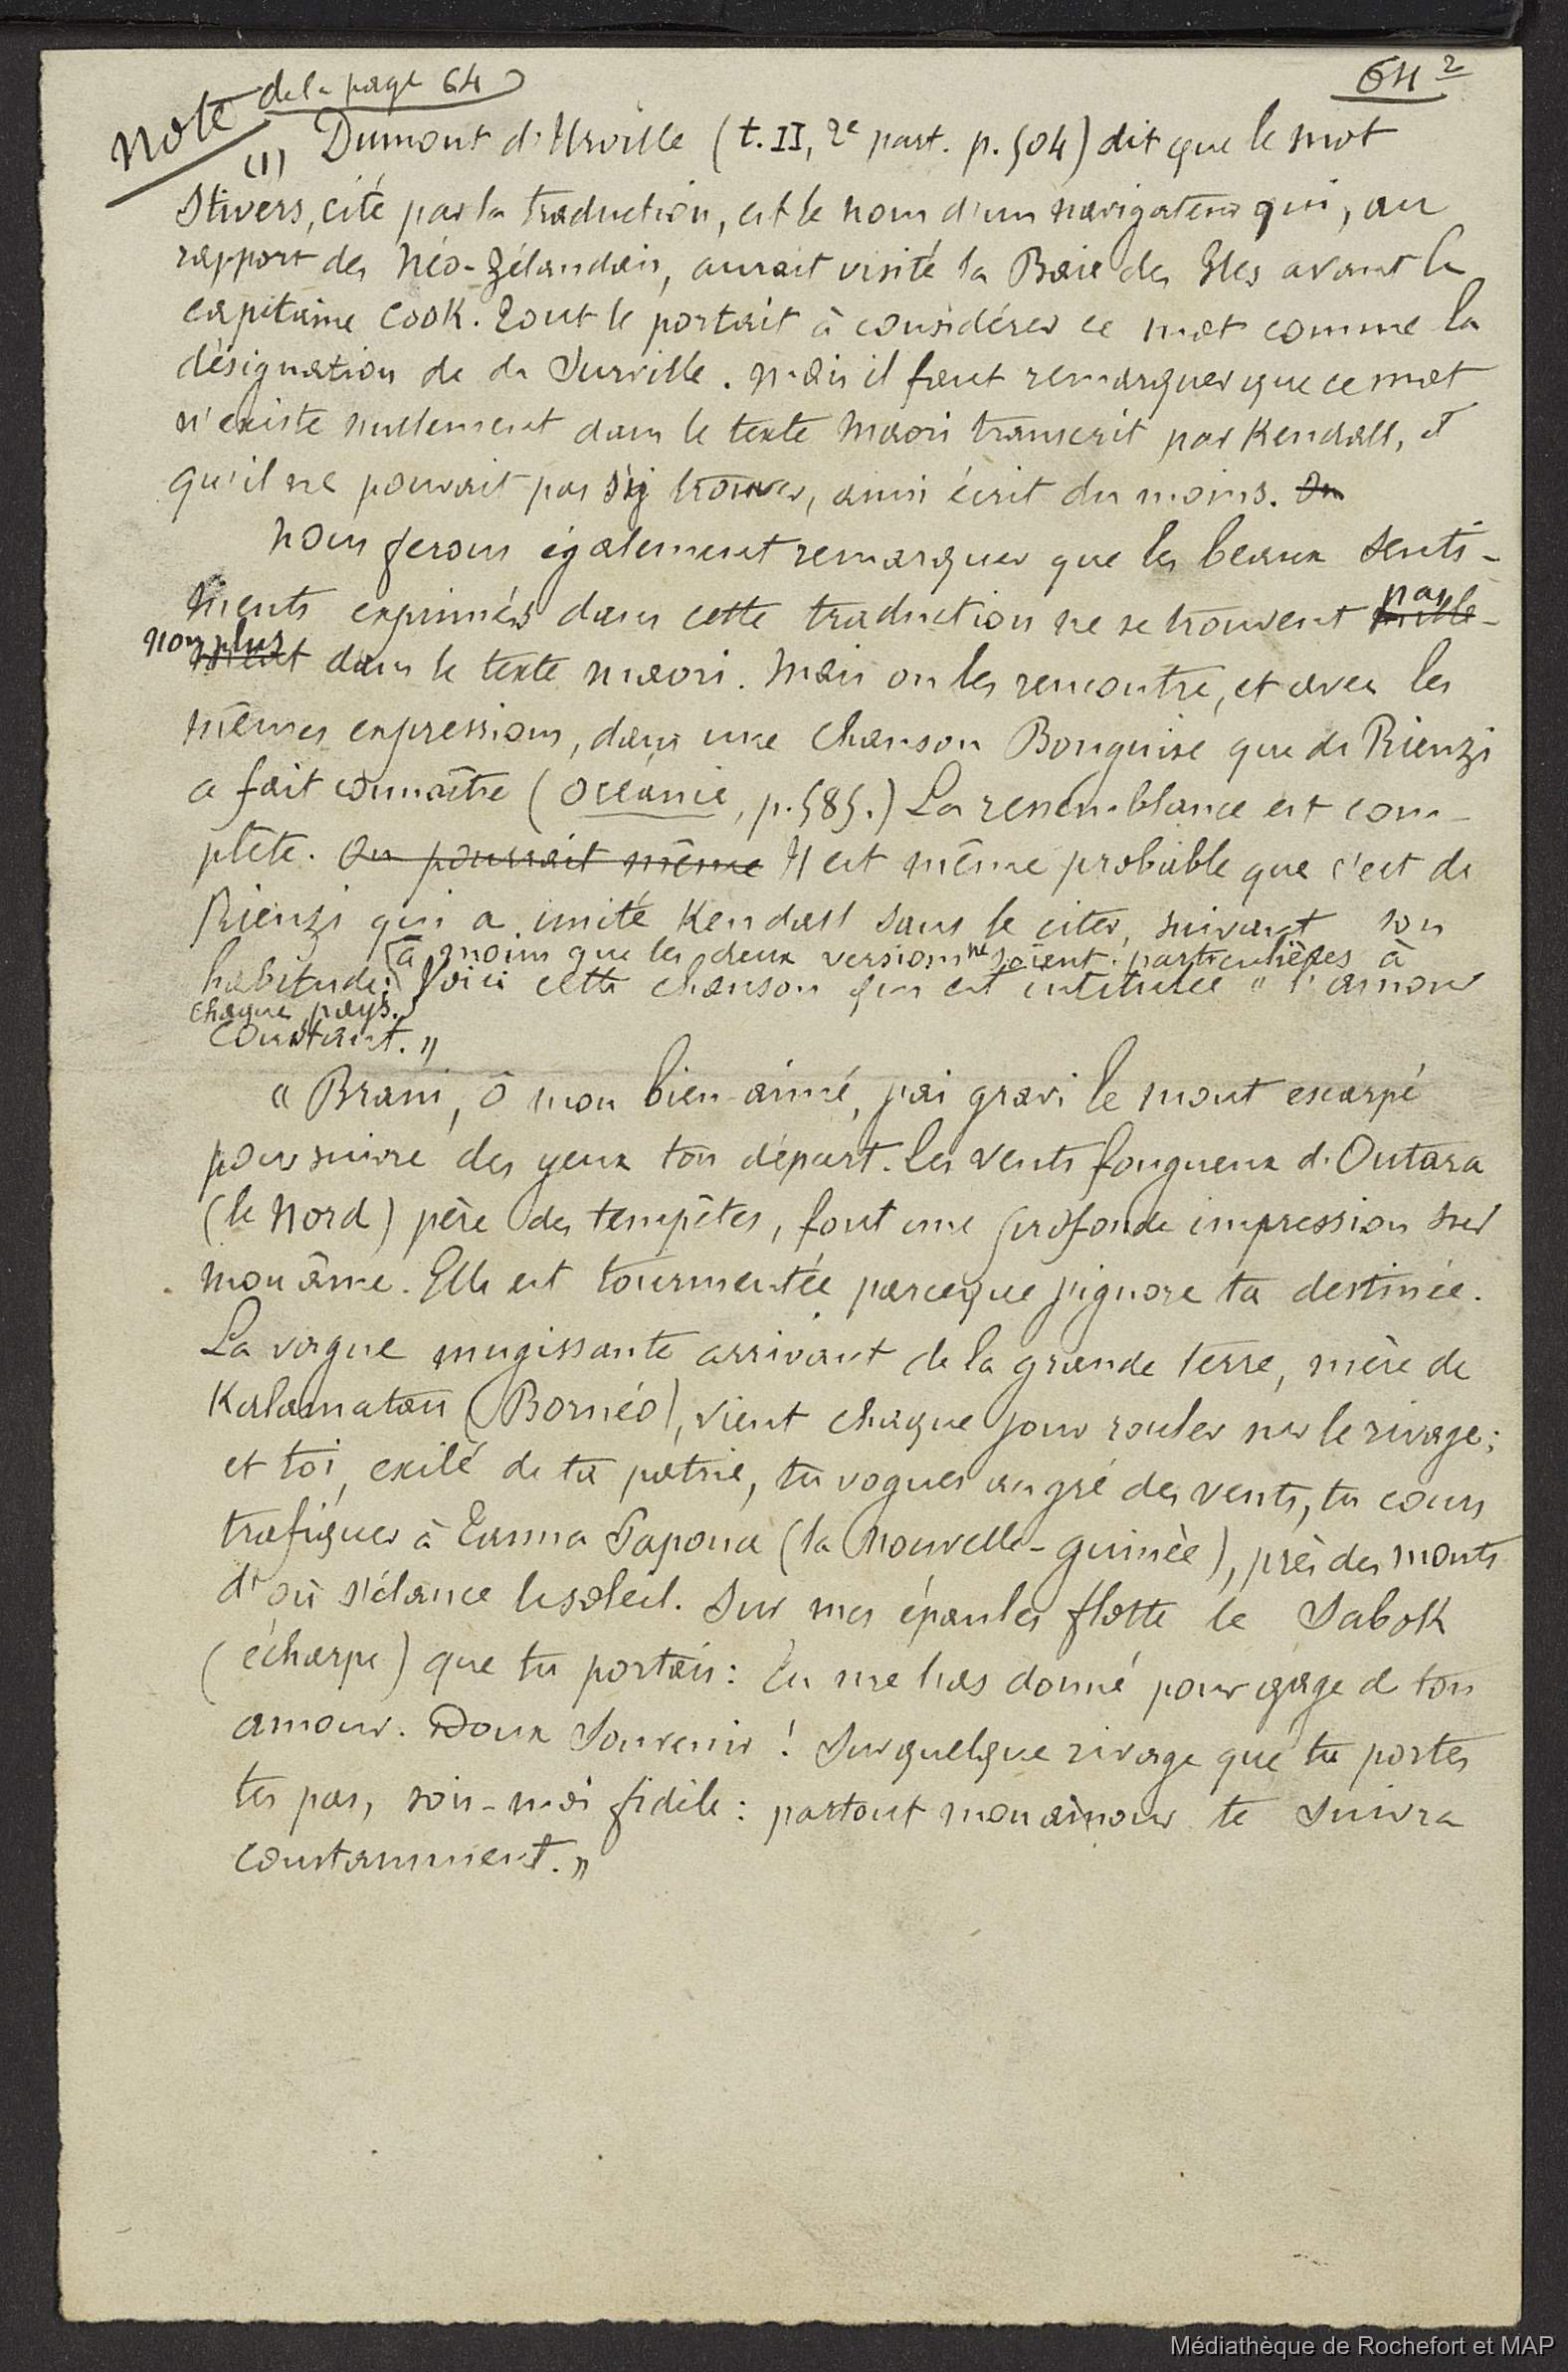 Note de la page 64
64 2
(1) Dumont d'Urville (t. II, 2e part. p. 504) dit que le mot
Stivers, cité par la traduction, est le nom d'un navigateur qui, au
rapport des Néo-Zélandais, aurait visité la Baie des Iles avant le
capitaine Cook. Tout le portait à considérer ce mot comme la
désignation de de Surville. Mais il faut remarquer que ce mot
n'existe nullement dans le texte Maori transcrit par Kendall, et
qu'il ne pouvait pas s'y trouver, ainsi écrit du moins. On
Nous ferons également remarquer que les beaux senti-
ments exprimés dans cette traduction ne se trouvent nulle- pas
ment non plus dans le texte maori. Mais on les rencontre, et avec les
mêmes expressions, dans une chanson Bouguise que de Rienzi
a fait connaître (Océanie, p. 585.) La ressemblance est com-
plète. On pourrait même Il est même probable que c'est de
Rienzi qui a imité Kendall sans le citer, suivant son
(à moins que les deux versions ne soient particulières à
habitude: Voici cette chanson qui est intitulée "l'amour
chaque pays.)
Constant."
"Brani, ô mon bien-aimé, j'ai gravi le mont escarpé
pour suivre des yeux ton départ. Les vents fougueux d'Outara
(le Nord) père des tempêtes, font une profonde impression sur
mon âme. Elle est tourmentée parceque j'ignore ta destinée.
La vague mugissante arrivant de la grande terre, mère de
Kalamatan (Bornéo), vient chaque jour rouler sur le rivage;
et toi, exilé de ta patrie, tu vogues au gré des vents, tu cours
trafiquer à Tanna Papoua (la Nouvelle-Guinée), près des monts
d'où s'élance le soleil. Sur mes épaules flotte le Sabok
(écharpe) que tu portais: Tu me l'as donné pour gage de ton
amour. Doux Souvenir! Sur quelque rivage que tu portes
tes pas, sois-moi fidèle: partout mon amour te suivra
constamment."
Médiathèque de Rochefort et MAP